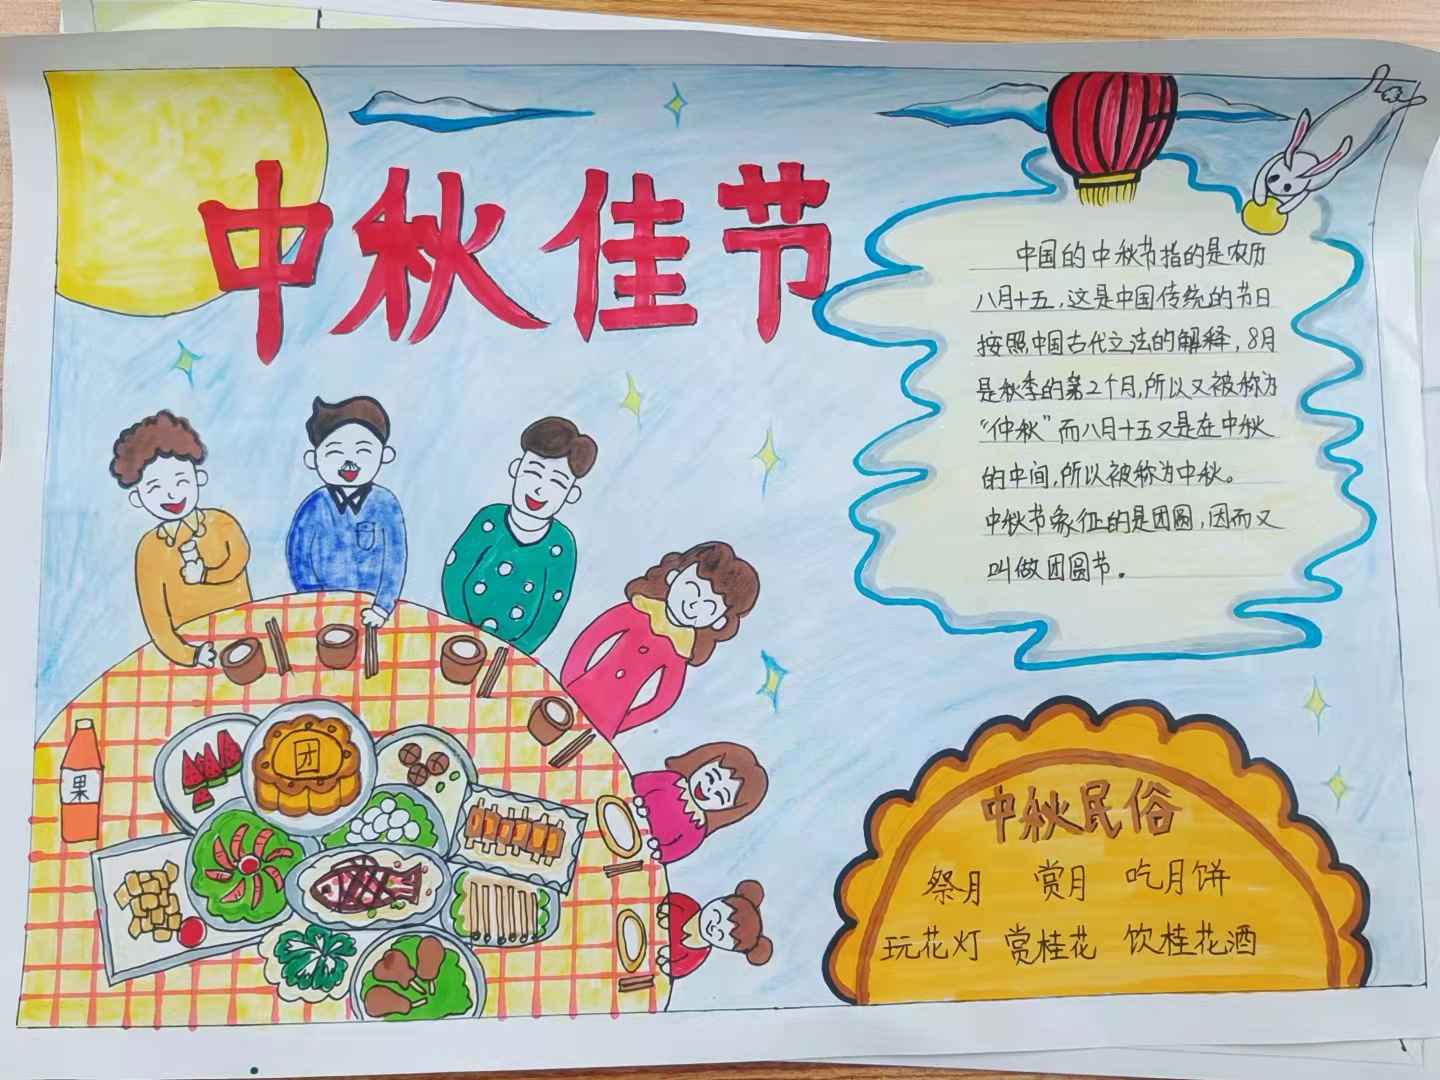 中秋佳节
中国的中秋节指的是农历
八月十五，这是中国传统的节日
按照中国古代立法的解释，8月
是秋季的第2个月，所以又被称为
“仲秋”而八月十五又是在中秋
的中间，所以被称为中秋。
中秋节象征的是团圆，因而又
叫做团圆节。
果
团
中秋民俗
祭月 赏月 吃月饼
玩花灯 赏桂花 饮桂花酒